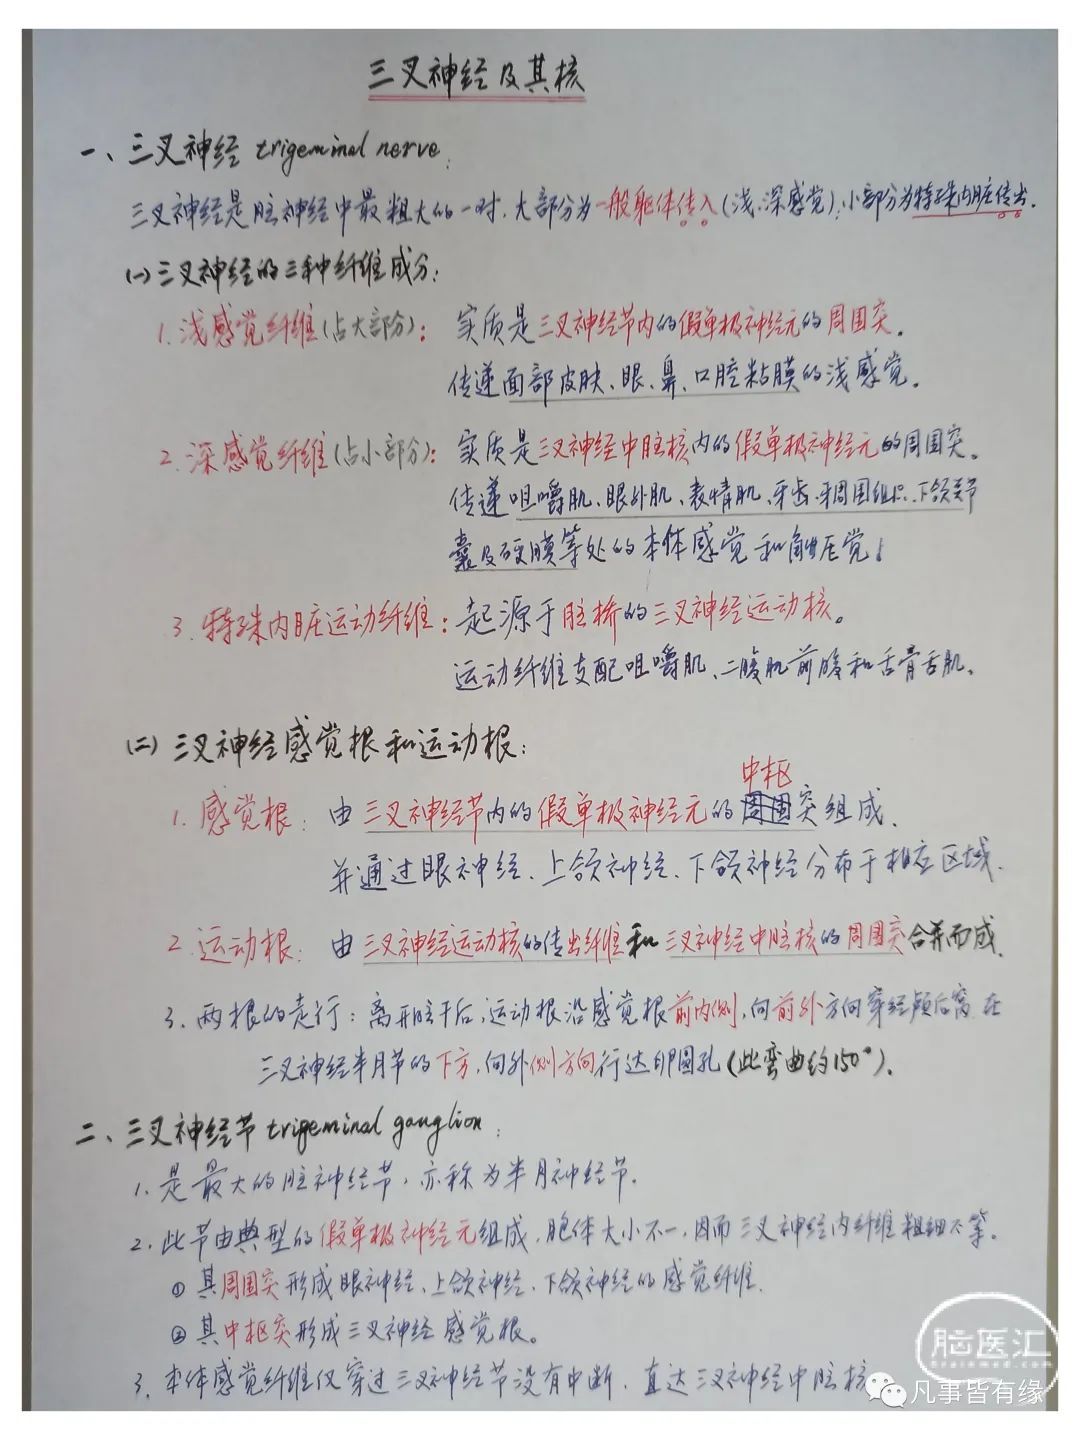 三叉神经及其核
一、三叉神经 trigeminal nerve:
三叉神经是脑神经中最粗大的一对,大部分为一般躯体传入(浅、深感觉),小部分为特殊内脏传出.
(一)三叉神经的三种纤维成分:
1.浅感觉纤维(占大部分): 实质是三叉神经节内的假单极神经元的周围突。
传递面部皮肤、眼、鼻、口腔粘膜的浅感觉。
2.深感觉纤维(占小部分): 实质是三叉神经中脑核内的假单极神经元的周围突。
传递咀嚼肌、眼外肌、表情肌、牙齿、牙周围组织、下颌关节
囊及硬膜等处的本体感觉和触压觉。
3.特殊内脏运动纤维: 起源于脑桥的三叉神经运动核。
运动纤维支配咀嚼肌、二腹肌前腹和舌骨舌肌。
(二)三叉神经感觉根和运动根:
中枢
1.感觉根: 由三叉神经节内的假单极神经元的周围突组成、
并通过眼神经、上颌神经、下颌神经分布于相应区域.
2.运动根: 由三叉神经运动核的传出纤维和三叉神经中脑核的周围突合并而成.
3.两根的走行:离开脑干后,运动根沿感觉根前内侧,向前外方向穿经颅后窝,在
三叉神经半月节的下方,向外侧方向行达卵圆孔(此弯曲约150°)。
二、三叉神经节 trigeminal ganglion:
1.是最大的脑神经节,亦称为半月神经节.
2.此节由典型的假单极神经元组成,胞体大小不一,因而三叉神经内纤维粗细不等.
①其周围突形成眼神经、上颌神经、下颌神经的感觉纤维.
②其中枢突形成三叉神经感觉根。
3.本体感觉纤维仅穿过三叉神经节没有中断,直达三叉神经中脑核
脑医汇
brainmed.com
凡事皆有缘